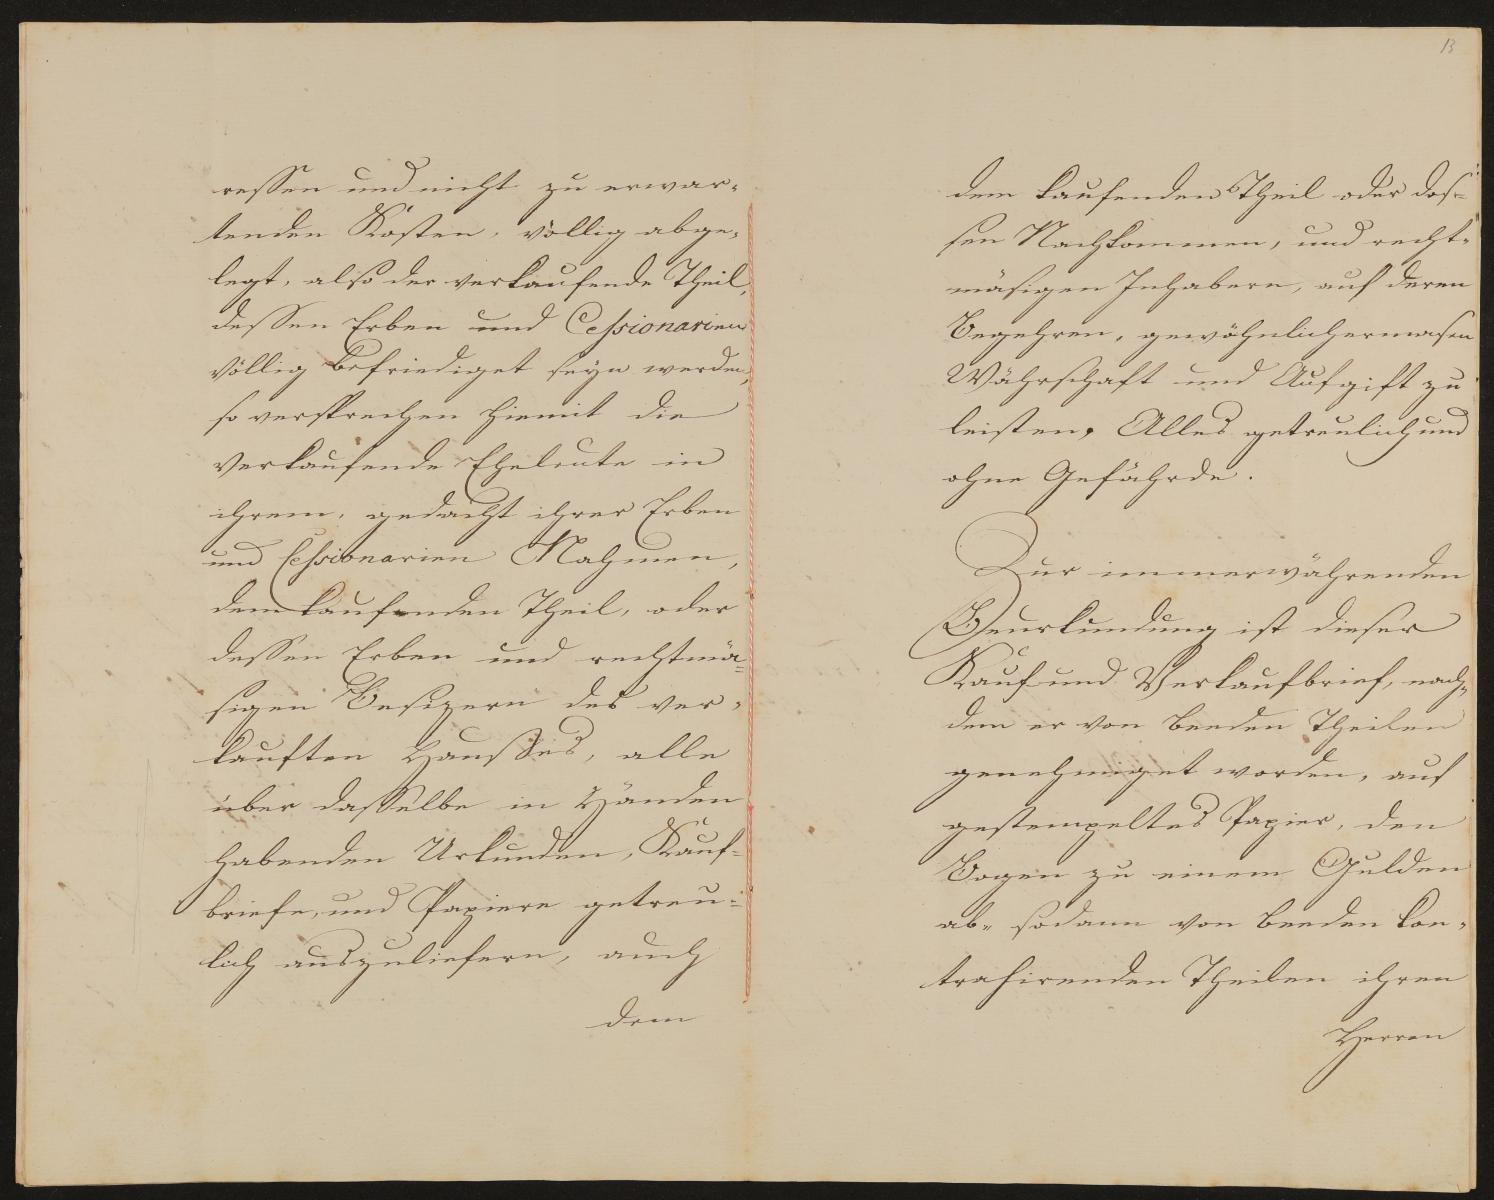 ressen und nicht zu erwar-
tenden Kosten, völlig abge-
legt, also der verkaufende Theil,
dessen Erben und Cessionarien
völlig befriediget seyn werden,
so versprechen hiemit die
verkaufende Eheleute in
ihrem, gedacht ihrer Erben
und Cessionarien Nahmen,
dem kaufenden Theil, oder
dessen Erben und rechtmä-
sigen Besizern des ver-
kauften Hausses, alle
über dasselbe in Händen
habenden Urkunden, Kauf-
briefe, und Papiere getreu-
lich auszuliefern, auch
dem
13
dem kaufenden Theil oder des-
sen Nachkommen, und recht-
mäsigen Inhabern, auf deren
Begehren, gewöhnlichermasen
Währschaft und Aufgift zu
leisten, Alles getreulich und
ohne Gefährde.
Zur immerwährenden
Beurkundung ist dieser
Kauf und Verkaufbrief, nach-
dem er von beeden Theilen
genehmiget worden, auf
gestempeltes Papier, den
Bogen zu einem Gulden
ab- sodann von beeden kon-
trahirenden Theilen ihren
Herren